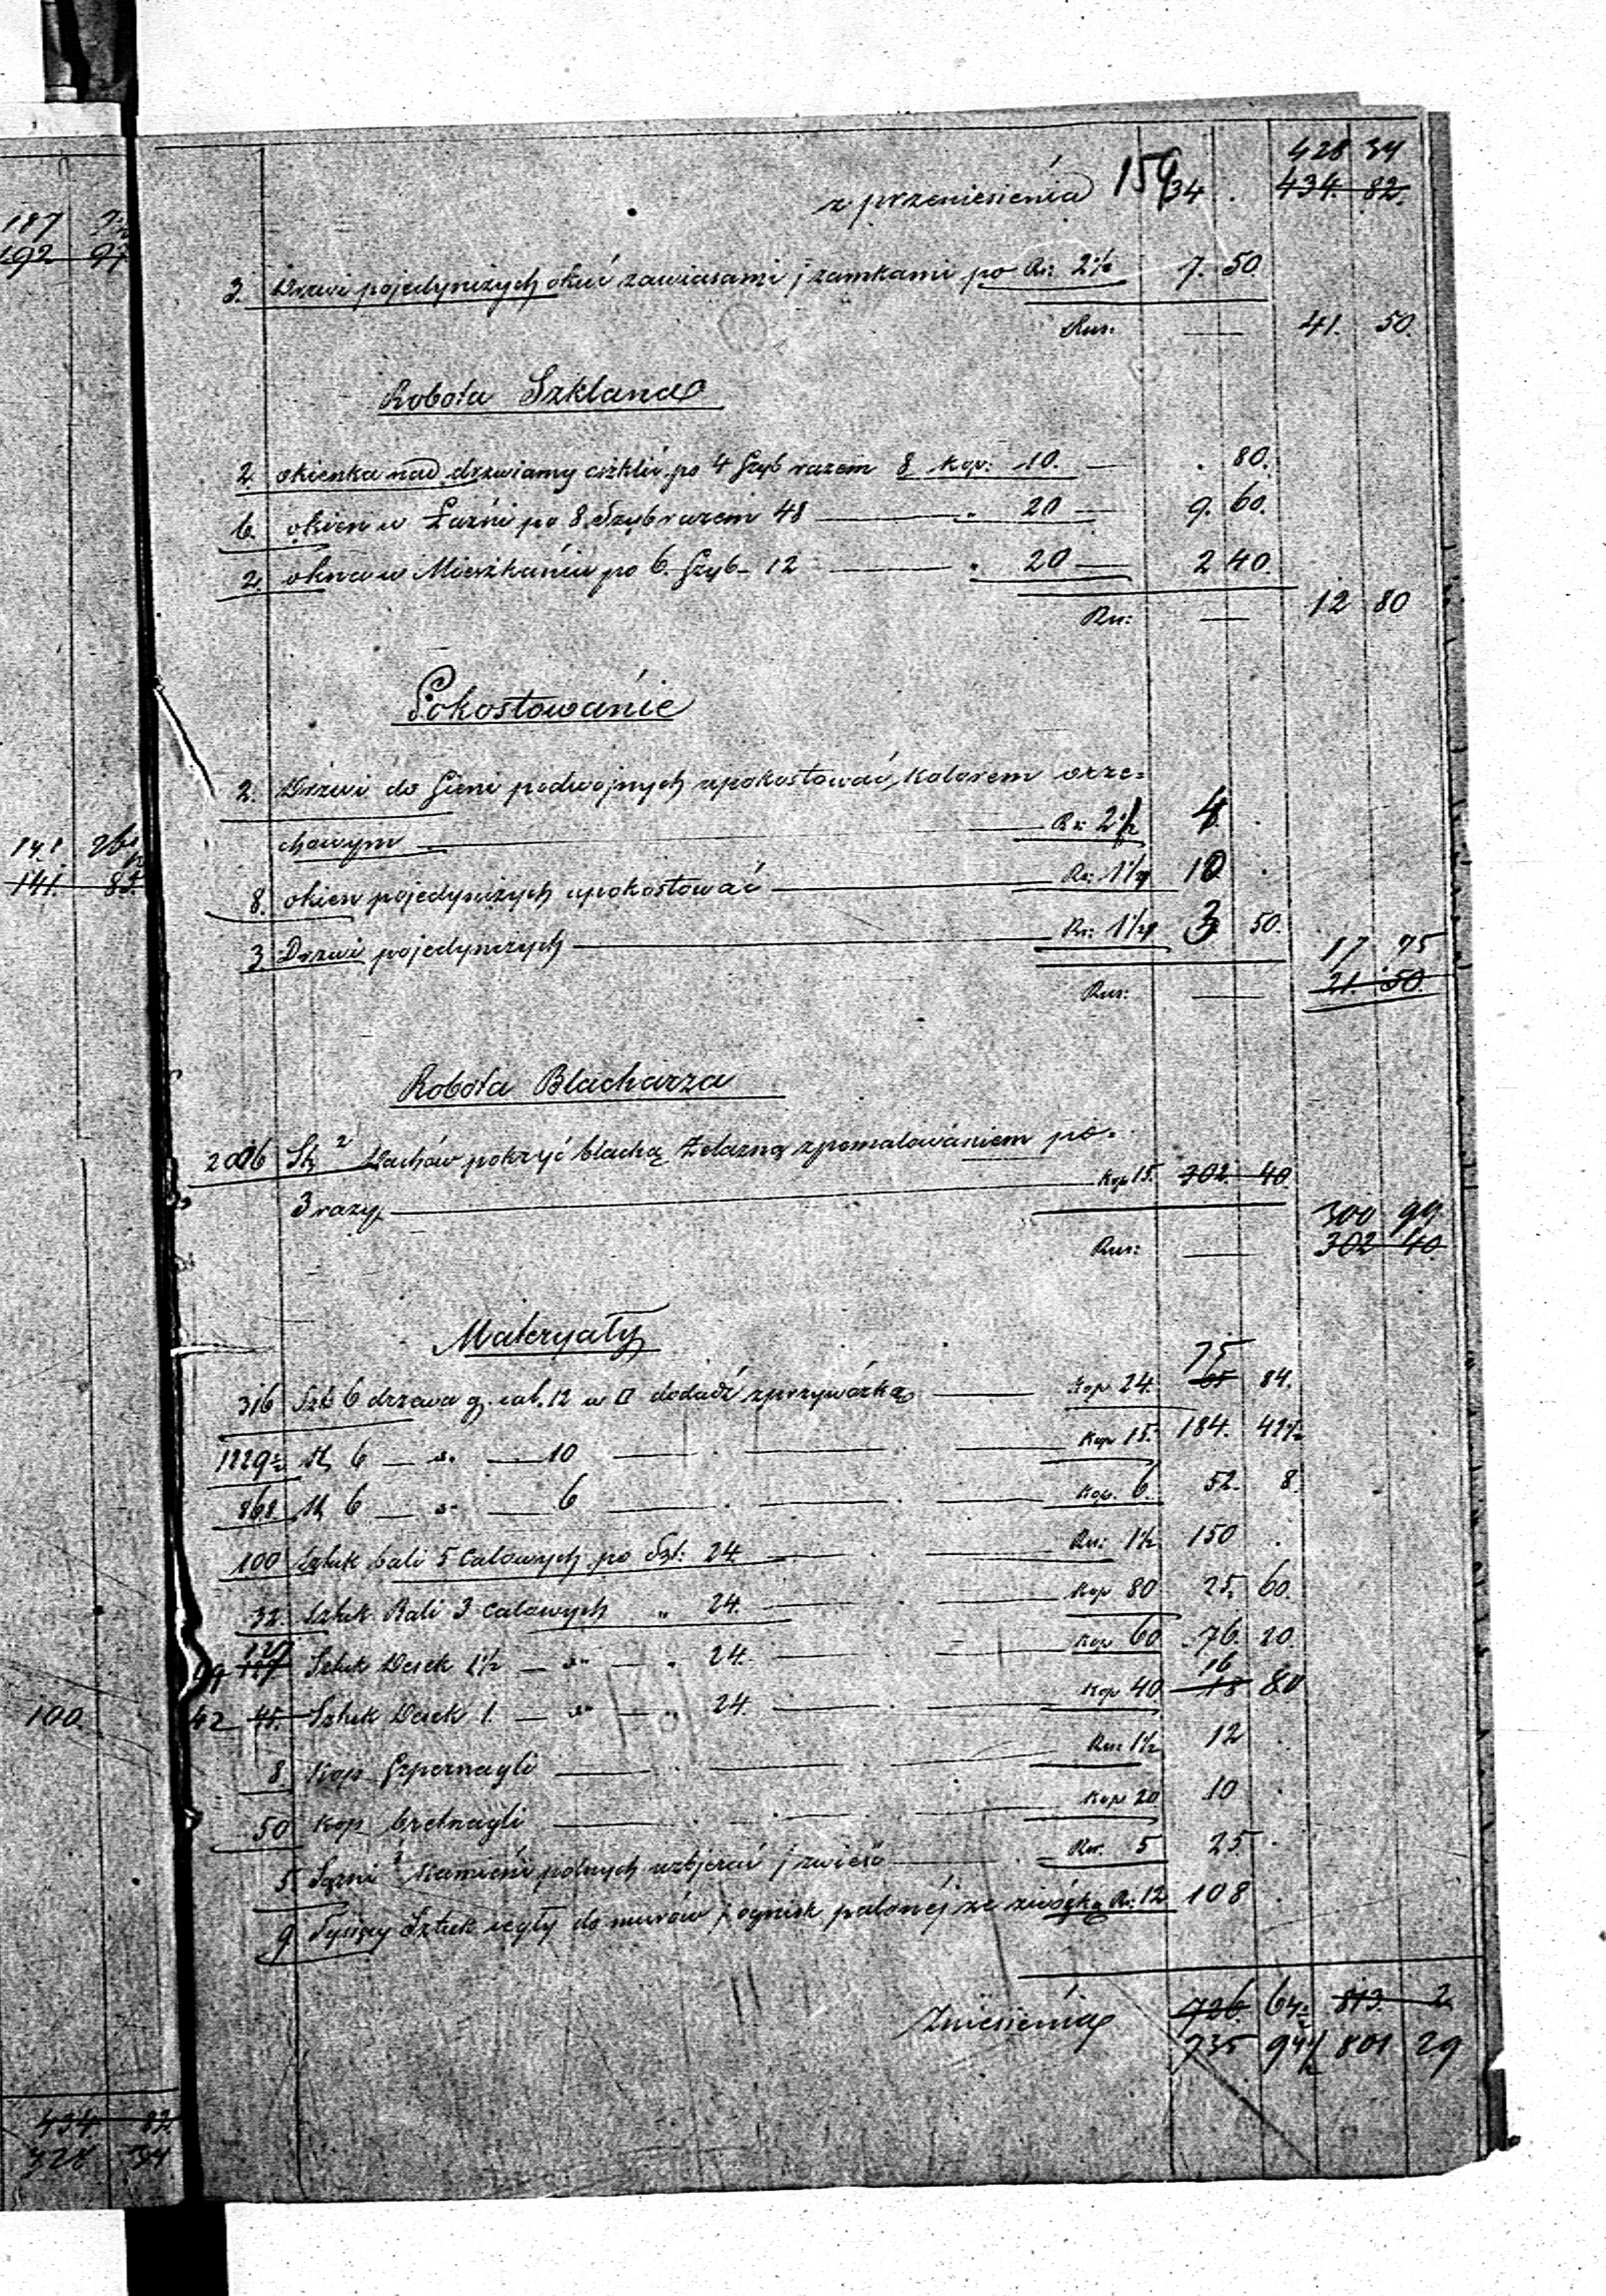 187
192 97
428 34
z przeniesienia 159 34 . 434. 82.
3. Drzwi pojedynczych okuć zawiasami j zamkami po Rs: 2½ 7. 50
Rus. — 41. 50.
Robota Szklana
2. okienka nad drzwiamy oszklić po 4 Szyb razem 8 kop: 10. — . 80.
6. okien w Łaźni po 8 Szyb razem 48 — " 20 — 9. 60.
2. okna w Mieszkaniu po 6. Szyb - 12 — " 20 — 2 40.
Rus: — 12 80
Pokostowanie
2. Drzwi do Sieni podwojnych upokostować, kolorem orze=
chowym — Rs: 2½ 4 .
8. okien pojedynczych upokostować — Rs: 1¼ 10 .
3 Drzwi pojedynczych — Rs: 1¼ 3 50.
17 75
Rus: — 21. 50.
141. 85.
Robota Blacharza
2006 St² Dachów pokryć blachą Żelazną z pomalowaniem po=
3 razy — Kop 15. 302. 40
300 99
Rus: — 302 40
Materyały
75
316 St 6 drzewa g. cal. 12 w □ dodadź z przywózką — Kop 24. 65 84.
1229½ St 6 — " — 10 — Kop 15. 184. 42½
868 St 6 — " — 6 — Kop. 6. 52. 8.
100 Sztuk bali 5 Calowych po St: 24 — Rus: 1½ 150 .
32 Sztuk Bali 3 Calowych " 24. — Kop 80 25. 60.
120
127 Sztuk Desek 1½ — " — " 24. — Kop 60 76. 20.
16
42 45. Sztuk Desek 1. — " — " 24. — Kop 40 18 80
100
8 Kop Szpernagli — Rus 1½ 12 .
50 Kop bretnagli — Kop 20 10 .
5 Sążni ³ Kamieni polnych uzbjerać j zwieść — Rus. 5 25 .
9 Tysięcy Sztuk cegły do murów j ognisk palonéj ze zwózką Rs: 12 108 .
Zniesienia 726. 64½ 813. 2
735 94½ 801 29
434. 82.
328 34